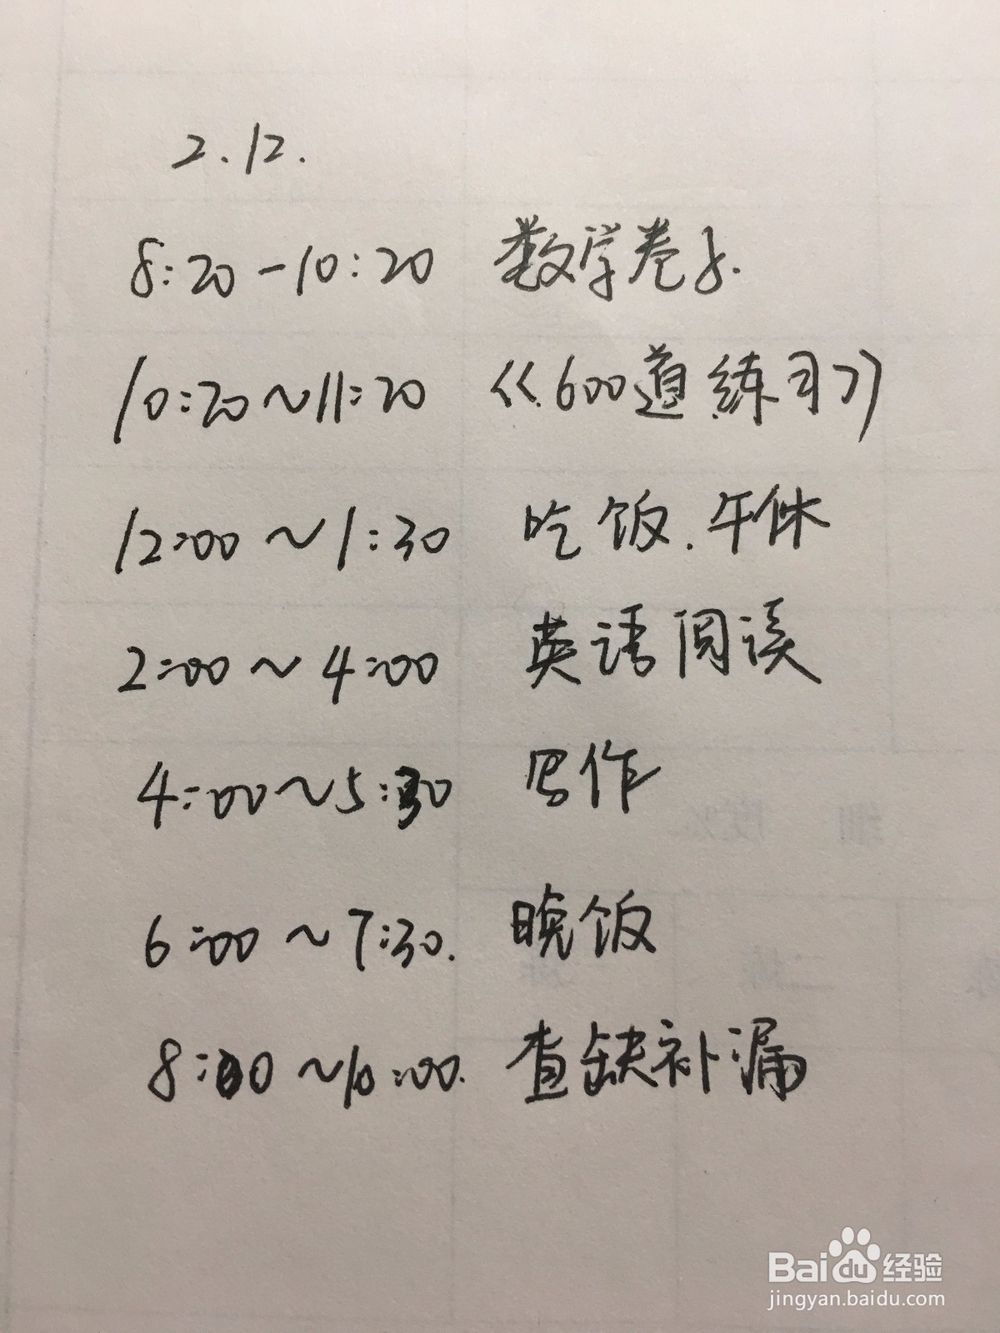 2.12.
8:20-10:20 数学卷子.
10:20~11:20 《600道练习》
12:00~1:30 吃饭.午休
2:00~4:00 英语阅读
4:00~5:30 写作
6:00~7:30. 晚饭
8:00~10:00. 查缺补漏
Baidu经验
jingyan.baidu.com